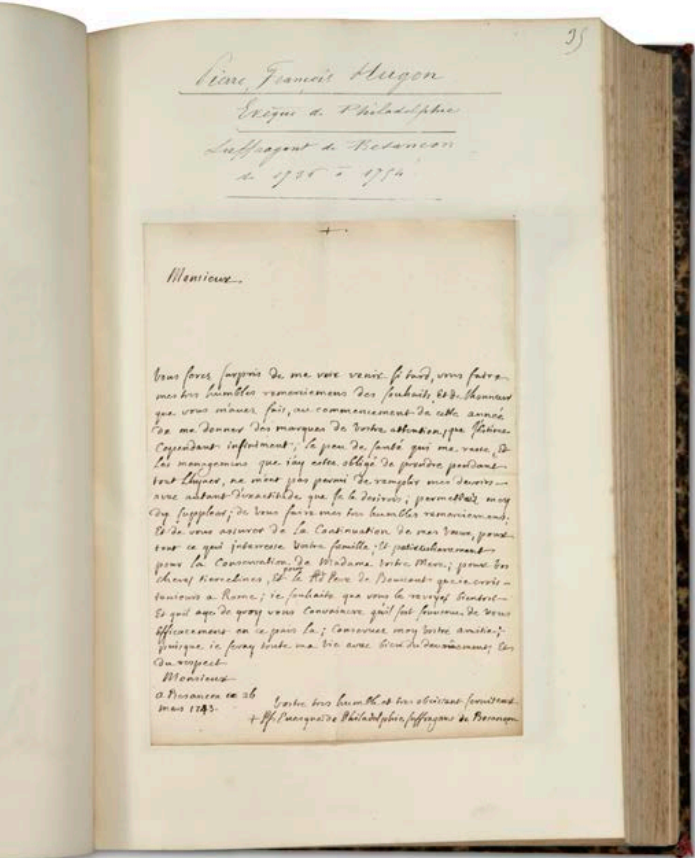 35
Pierre, François Hugon
Evêque de Philadelphie
Suffragant de Besancon
de 1736 à 1754
+
Monsieur
Vous serez surpris de me voir venir si tard, vous faire
mes tres humbles remerciemens des souhaits, Et de lhonneur
que vous m'aues fait, au commencement de cette année
de me donner des marques de Vostre attention, que Jestime
Cependant infiniment; le peu de santé qui me reste, Et
les menagemens que iay estee obligé de prendre pendant
tout Lhyuer, ne m'ont pas permi de remplir mes devoirs
avec autant d'exactitude que je le desirois; permettez moy
dy suppleer, de vous faire mes tres humbles remerciemens,
Et de vous assurer de La Continuation de mes Vœux, pour
tout ce qui interresse Vostre famille, Et particulierement
pour la Conservation de Madame Vostre Mere; pour vos
cheres, Et pour le Rd Pere de que ie crois
tousiours a Rome; ie souhaite que vous le revoyez bientost
Et quil aye de quoy vous Convaincre quil s'est souvenu de vous
Efficacement en ce pais La; Conservez moy Vostre amitié,
puisque ie seray toute ma Vie avec bien du devouement, Et
du respect
Monsieur
a Besancon ce 26
mars 1743.
Vostre tres humble et tres obeissant serviteur
+ pf. Euesque de Philadelphie, suffragant de Besancon